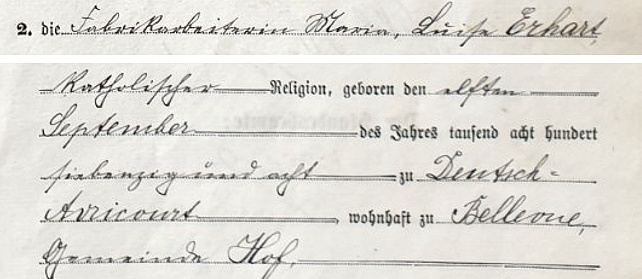 2. die Fabrikarbeiterin Maria, Luise Erhart,
katholischer Religion, geboren den elften
September des Jahres tausend acht hundert
siebenzig und acht zu Deutsch-
Avricourt, wohnhaft zu Bellevue,
Gemeinde Hof,